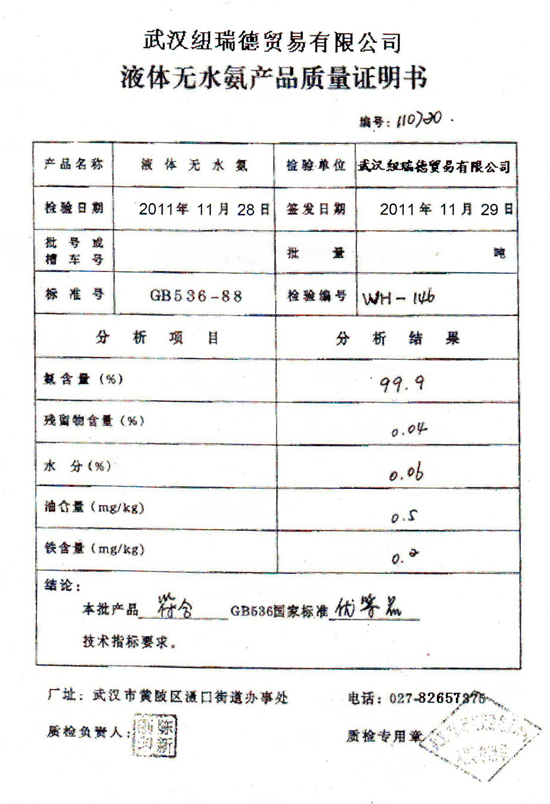 武汉纽瑞德贸易有限公司
液体无水氨产品质量证明书
编号: 110720.
产品名称 液体无水氨 检验单位 武汉纽瑞德贸易有限公司
检验日期 2011年 11月 28日 签发日期 2011年 11月 29日
批号或槽车号 批量 吨
标准号 GB536-88 检验编号 WH-146
分析项目 分析结果
氨含量(%) 99.9
残留物含量(%) 0.04
水 分(%) 0.06
油含量(mg/kg) 0.5
铁含量(mg/kg) 0.2
结论:
本批产品 符合 GB536国家标准 优等品
技术指标要求。
厂址: 武汉市黄陂区滠口街道办事处 电话: 027-82657375
质检负责人: 质检专用章